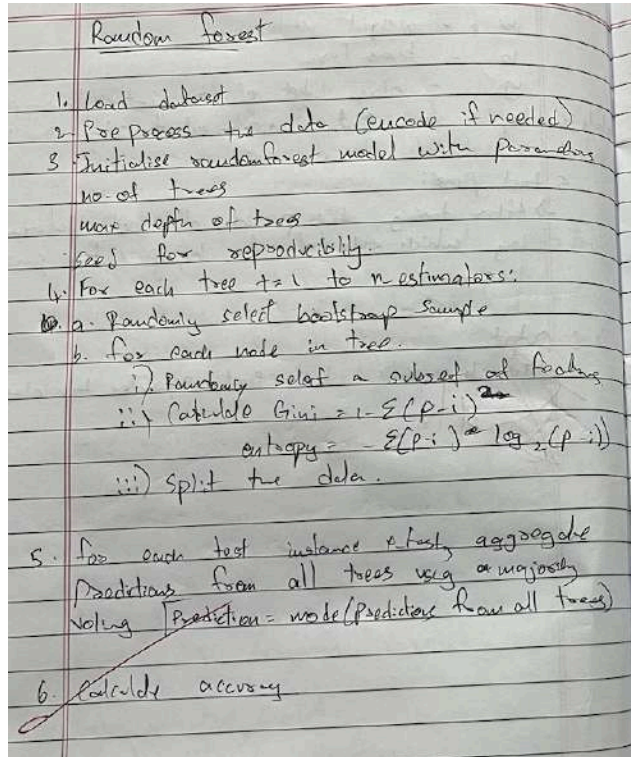 Random forest
1. Load dataset
2 Pre Process the data (encode if needed)
3 Initialise randomforest model with
no. of trees
max depth of trees
seed for reproducibility.
4. For each tree t=1 to n estimators:
a. Randomly select bootstrap sample
b. for each node in tree.
i) Randomly select a subset of
ii) Calculate Gini = 1 - Σ(p-i)²
entropy = - Σ(p-i) * log₂(p-i))
iii) Split the data.
5. for each test instance aggregate
Predictions from all trees using majority
Voting Prediction = mode(Predictions from all trees)
6. Calculate accuracy